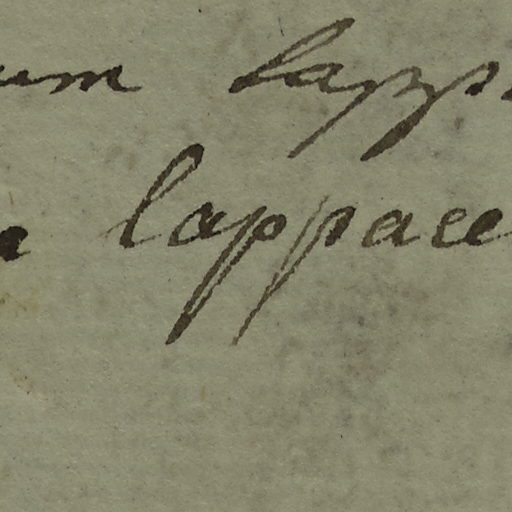 um lapp
a lappace